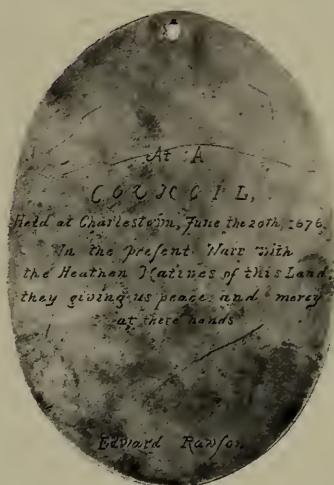 At A
COUNCIL,
Held at Charlestown, June the 20th, 1676.
In the preſent Warr with
the Heathen Natives of this Land,
they giving us peace and mercy
at there hands
Edward Rawſon